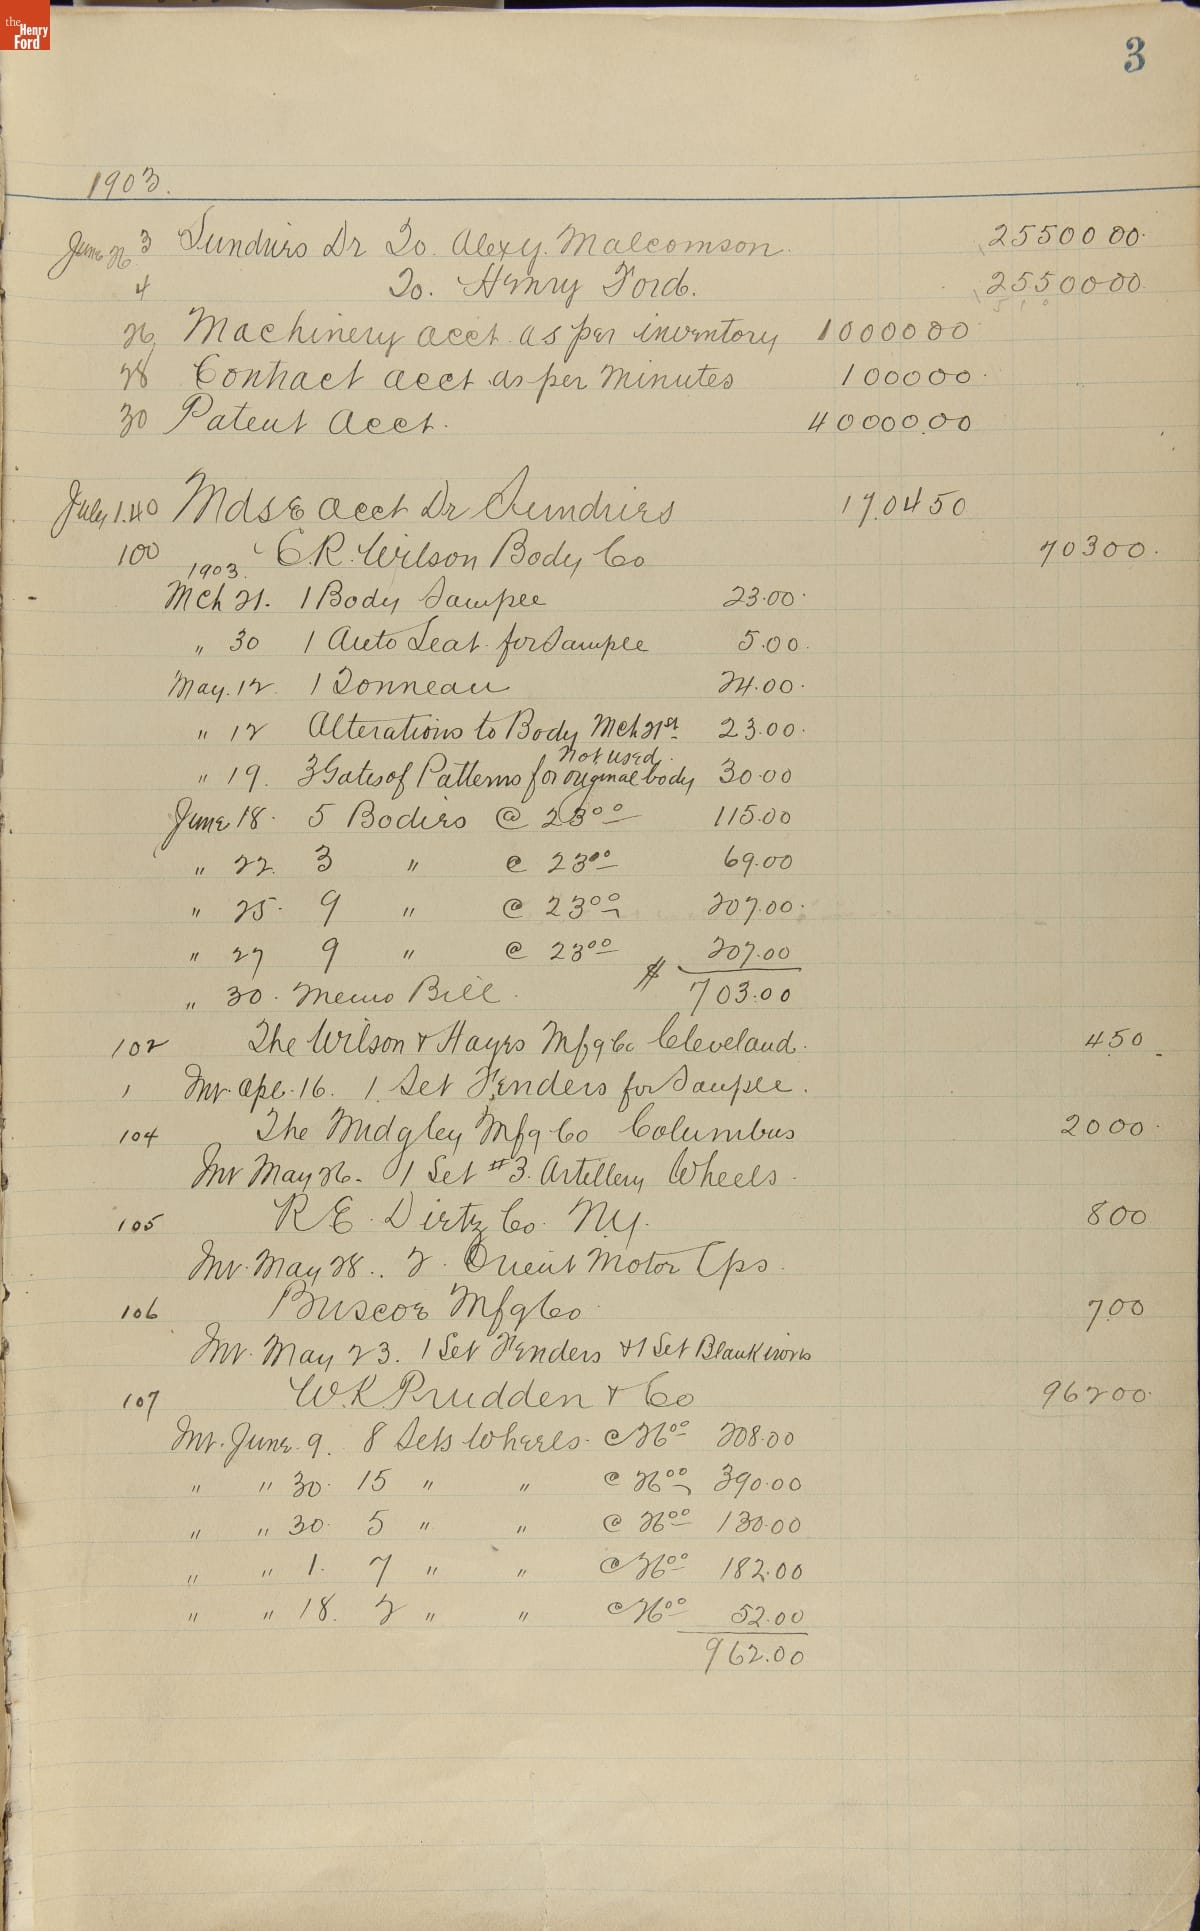 the Henry Ford
3
1903.
June 26 3 Sundries Dr To. Alexy. Malcomson 25500 00
4 To. Henry Ford. 25500 00
26 Machinery acct as per inventory 10000 00
28 Contract acct as per minutes 1000 00
30 Patent Acct. 40000.00
July 1. 40 Mdse acct Dr Sundries 1704 50
100 C.R. Wilson Body Co 703 00
1903
Mch 21. 1 Body Sample 23.00
" 30 1 Auto Seat for Sample 5.00
May. 12 1 Tonneau 24.00
" 12 Alterations to Body Mch 21st 23.00
not used
" 19. 3 Gates of Patterns for original body 30.00
June 18. 5 Bodies @ 23 00 115.00
" 22. 3 " @ 23 00 69.00
" 25. 9 " @ 23 00 207.00
" 27 9 " @ 23 00 207.00
" 30. Memo Bill. $ 703.00
102 The Wilson & Hayes Mfg Co Cleveland. 4 50
1 Inv. Apl. 16. 1 Set Fenders for Sample.
104 The Midgley Mfg Co Columbus 20 00
Inv May 26. 1 Set #3. Artillery Wheels.
105 R.E. Dietz Co. N.Y. 8 00
Inv. May 28.. 2. Orient Motor Lps.
106 Briscoe Mfg Co 7.00
Inv. May 23. 1 Set Fenders & 1 Set Blank irons
107 W.K. Prudden & Co 962 00
Inv. June 9. 8 Sets Wheels. @ 26 00 208.00
" " 30. 15 " " @ 26 00 390.00
" " 30. 5 " " @ 26 00 130.00
" " 1. 7 " " @ 26 00 182.00
" " 18. 2 " " @ 26 00 52.00
962.00